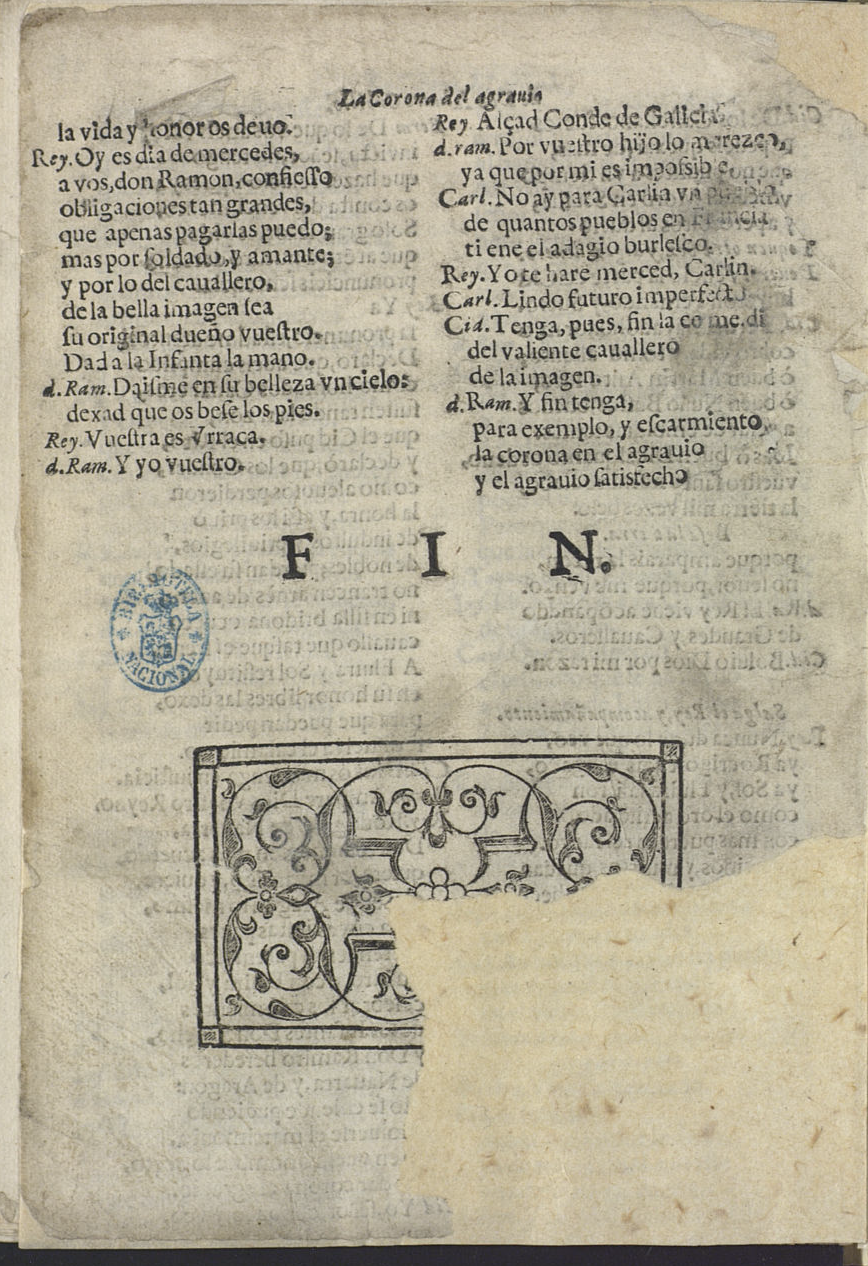 La Corona del agrauio
la vida y honor os deuo.
Rey. Oy es dia de mercedes,
a vos, don Ramon, confiesso
obligaciones tan grandes,
que apenas pagarlas puedo;
mas por soldado, y amante;
y por lo del cauallero,
de la bella imagen sea
su original dueño vuestro.
Dad a la Infanta la mano.
d. Ram. Daisme en su belleza vn cielo:
dexad que os bese los pies.
Rey. Vuestra es Vrraca.
d. Ram. Y yo vuestro.
Rey Alçad Conde de Galicia.
d. ram. Por vuestro hijo lo merezco,
ya que por mi es impossible.
Carl. No ay para Carlin vn
de quantos pueblos en Francia
ti ene el adagio burlesco.
Rey. Yo te hare merced, Carlin.
Carl. Lindo futuro imperfecto
Cid. Tenga, pues, fin la comedi
del valiente cauallero
de la imagen.
d. Ram. Y fin tenga,
para exemplo, y escarmiento,
la corona en el agrauio
y el agrauio satisfecho
F I N.
BIBLIOTECA
NACIONAL